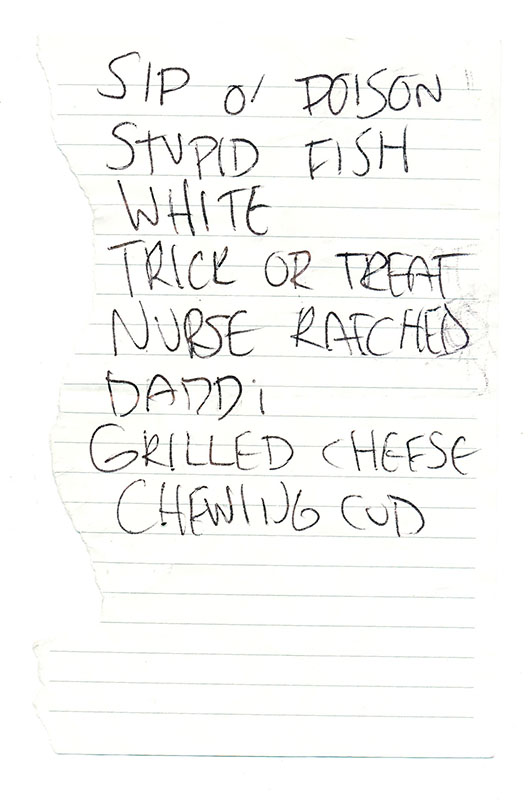 SIP O' POISON
STUPID FISH
WHITE
TRICK OR TREAT
NURSE RATCHED
DADDI
GRILLED CHEESE
CHEWING CUD